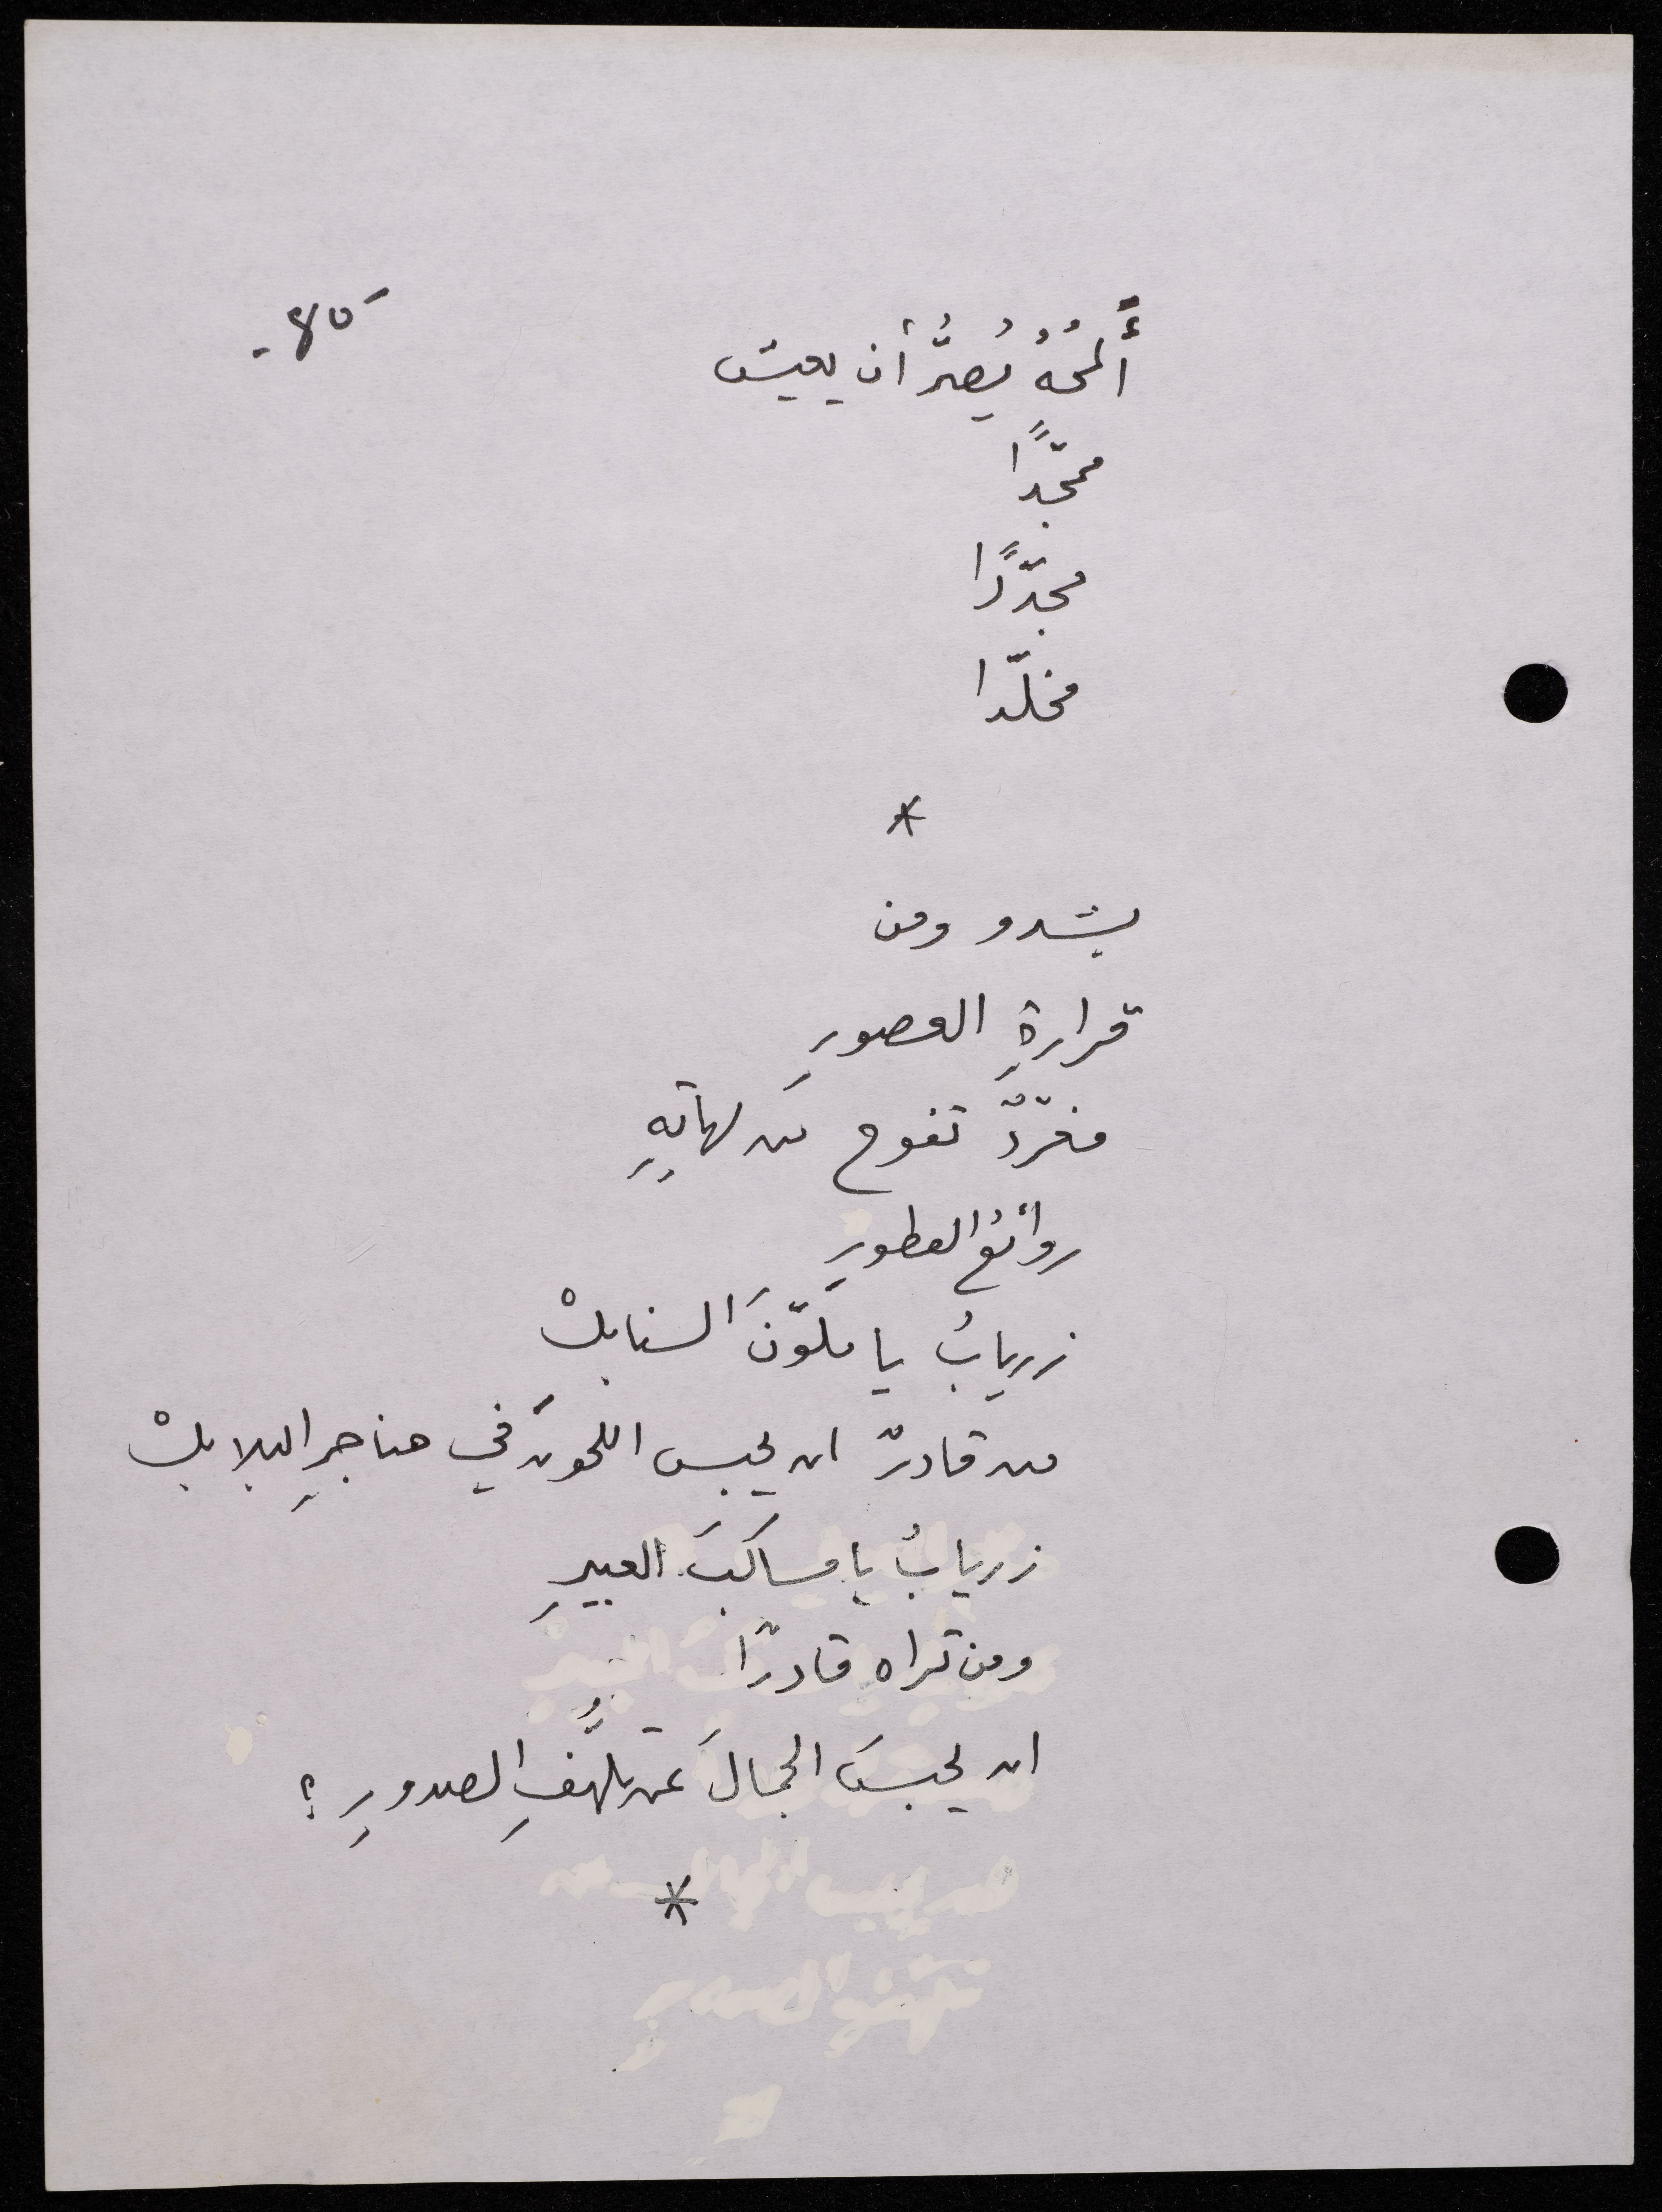 أَلمحُهُ يُصرُّ أن يعيش
ممجّدًا
مجدّدًا
مخلّدا
*
يشدو ومن
قرارةِ العصورِ
مغرّدٌ تفوح مَن لهاتِهِ
روائعُ العطورِ
زريابُ يا ملوّنَ السنابلْ
من قادرٌ ان يحبس اللحونَ في حناجرِ البلابلْ
زريابُ يا مساكبَ العبيرِ
ومن تراه قادرًا
ان يحبسَ الجمالَ عن تلهُّفِ الصدورِ؟
*